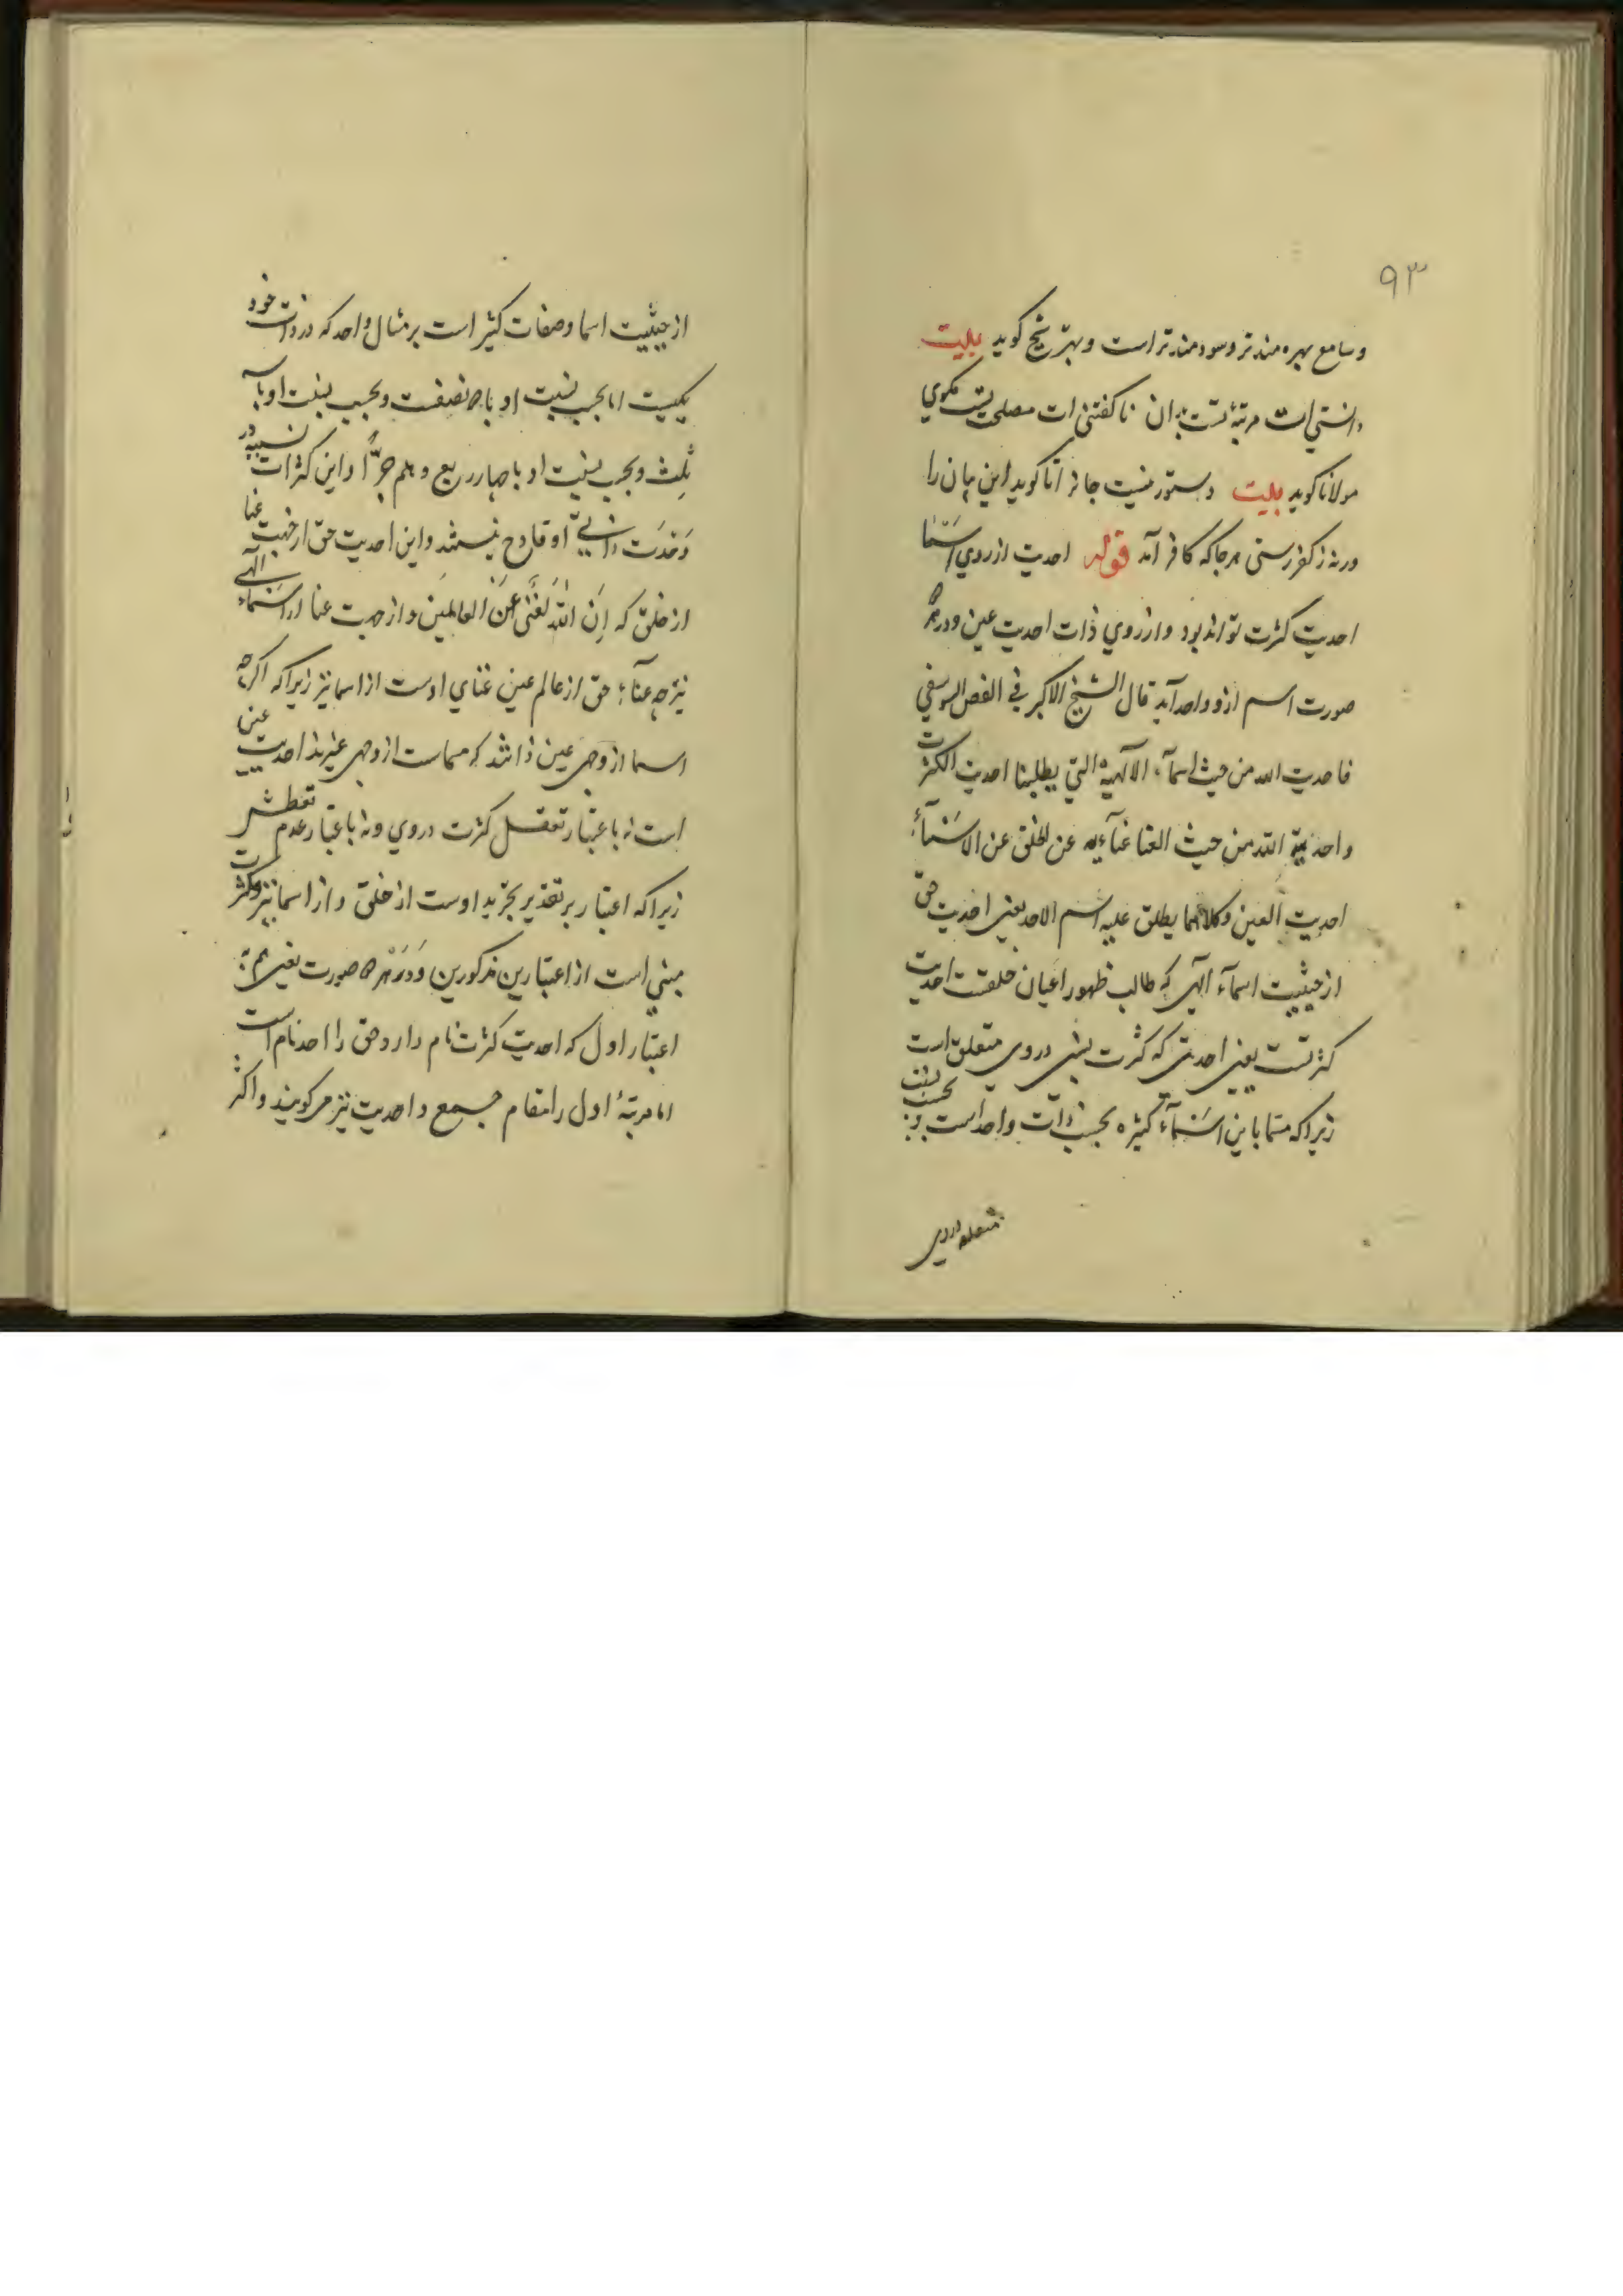 ۹۳
وسامع بهره مندتر وسودمندتر است وبهتر شیخ کوید بیت
دانستنی است مرتبه تست بدان ناکفتنی است مصلحت نیست مکوی
مولانا کوید بیت دستور نیست جانرا تا کوید این بیان را
ورنه ز کفر رستی هرجا که کافر آمد قوله احدیت از روی اسما
احدیت کثرت تواند بود واز روی ذات احدیت عین ودرهر
صورت اسم ازو واحد آید قال الشیخ الاکبر فی الفص الیوسفی
فاحدیت الله من حیث اسمآء الآلهیة التی یطلبنا احدیت الکثرت
واحدیة الله من حیث الغنا غنآءیه عن الخلق عن الاسمآء
احدیت العین وکلاهما یطلق علیه اسم الاحد یعنی احدیت حق
ازحیثیت اسمآء الهی که طالب ظهور اعیان خلقست احدیت
کثرتست یعنی احدیتی که کثرت نسبی دروی متعقل است
زیراکه مسما باین اسمآء کثیره بحسب ذات واحد است و بحسب نسبت
متعقله دروی
ازحیثیت اسما وصفات کثیر است برمثال واحد که درذات خود
یکیست اما بحسب نسبت او با نصفست وبحسب نسبت او با
ثلث وبحسب نسبت او با چهار ربع وهلم جرّا واین کثرات نسبیه در
وحدت ذاتیّ او قادح نیستند واین احدیت حق ازجهت غنا
ازخلق که اِنَ اللهَ لَغَنی عَنَ العالمینَ واز جهت غنا از اسمآء آلهی
نیز چه غنآء حق ازعالم عین غنای اوست از اسما نیز زیراکه اکرچه
اسما ازوجهی عین ذاتند که مسماست ازوجهی غیرند احدیت عین
است نه باعتبار تعقل کثرت دروی ونه باعتبار عدم تعقلش
زیراکه اعتبار برتقدیر تجرید اوست ازخلق واز اسما نیز وکثرت
مبنی است از اعتبارین مذکورین وَدَرْهر صورت یعنی هم
اعتبار اول که احدیت کثرت نام دارد حق را احد نام است
اما مرتبهٔ اول را مقام جمع واحدیت نیز میکویند واکثر